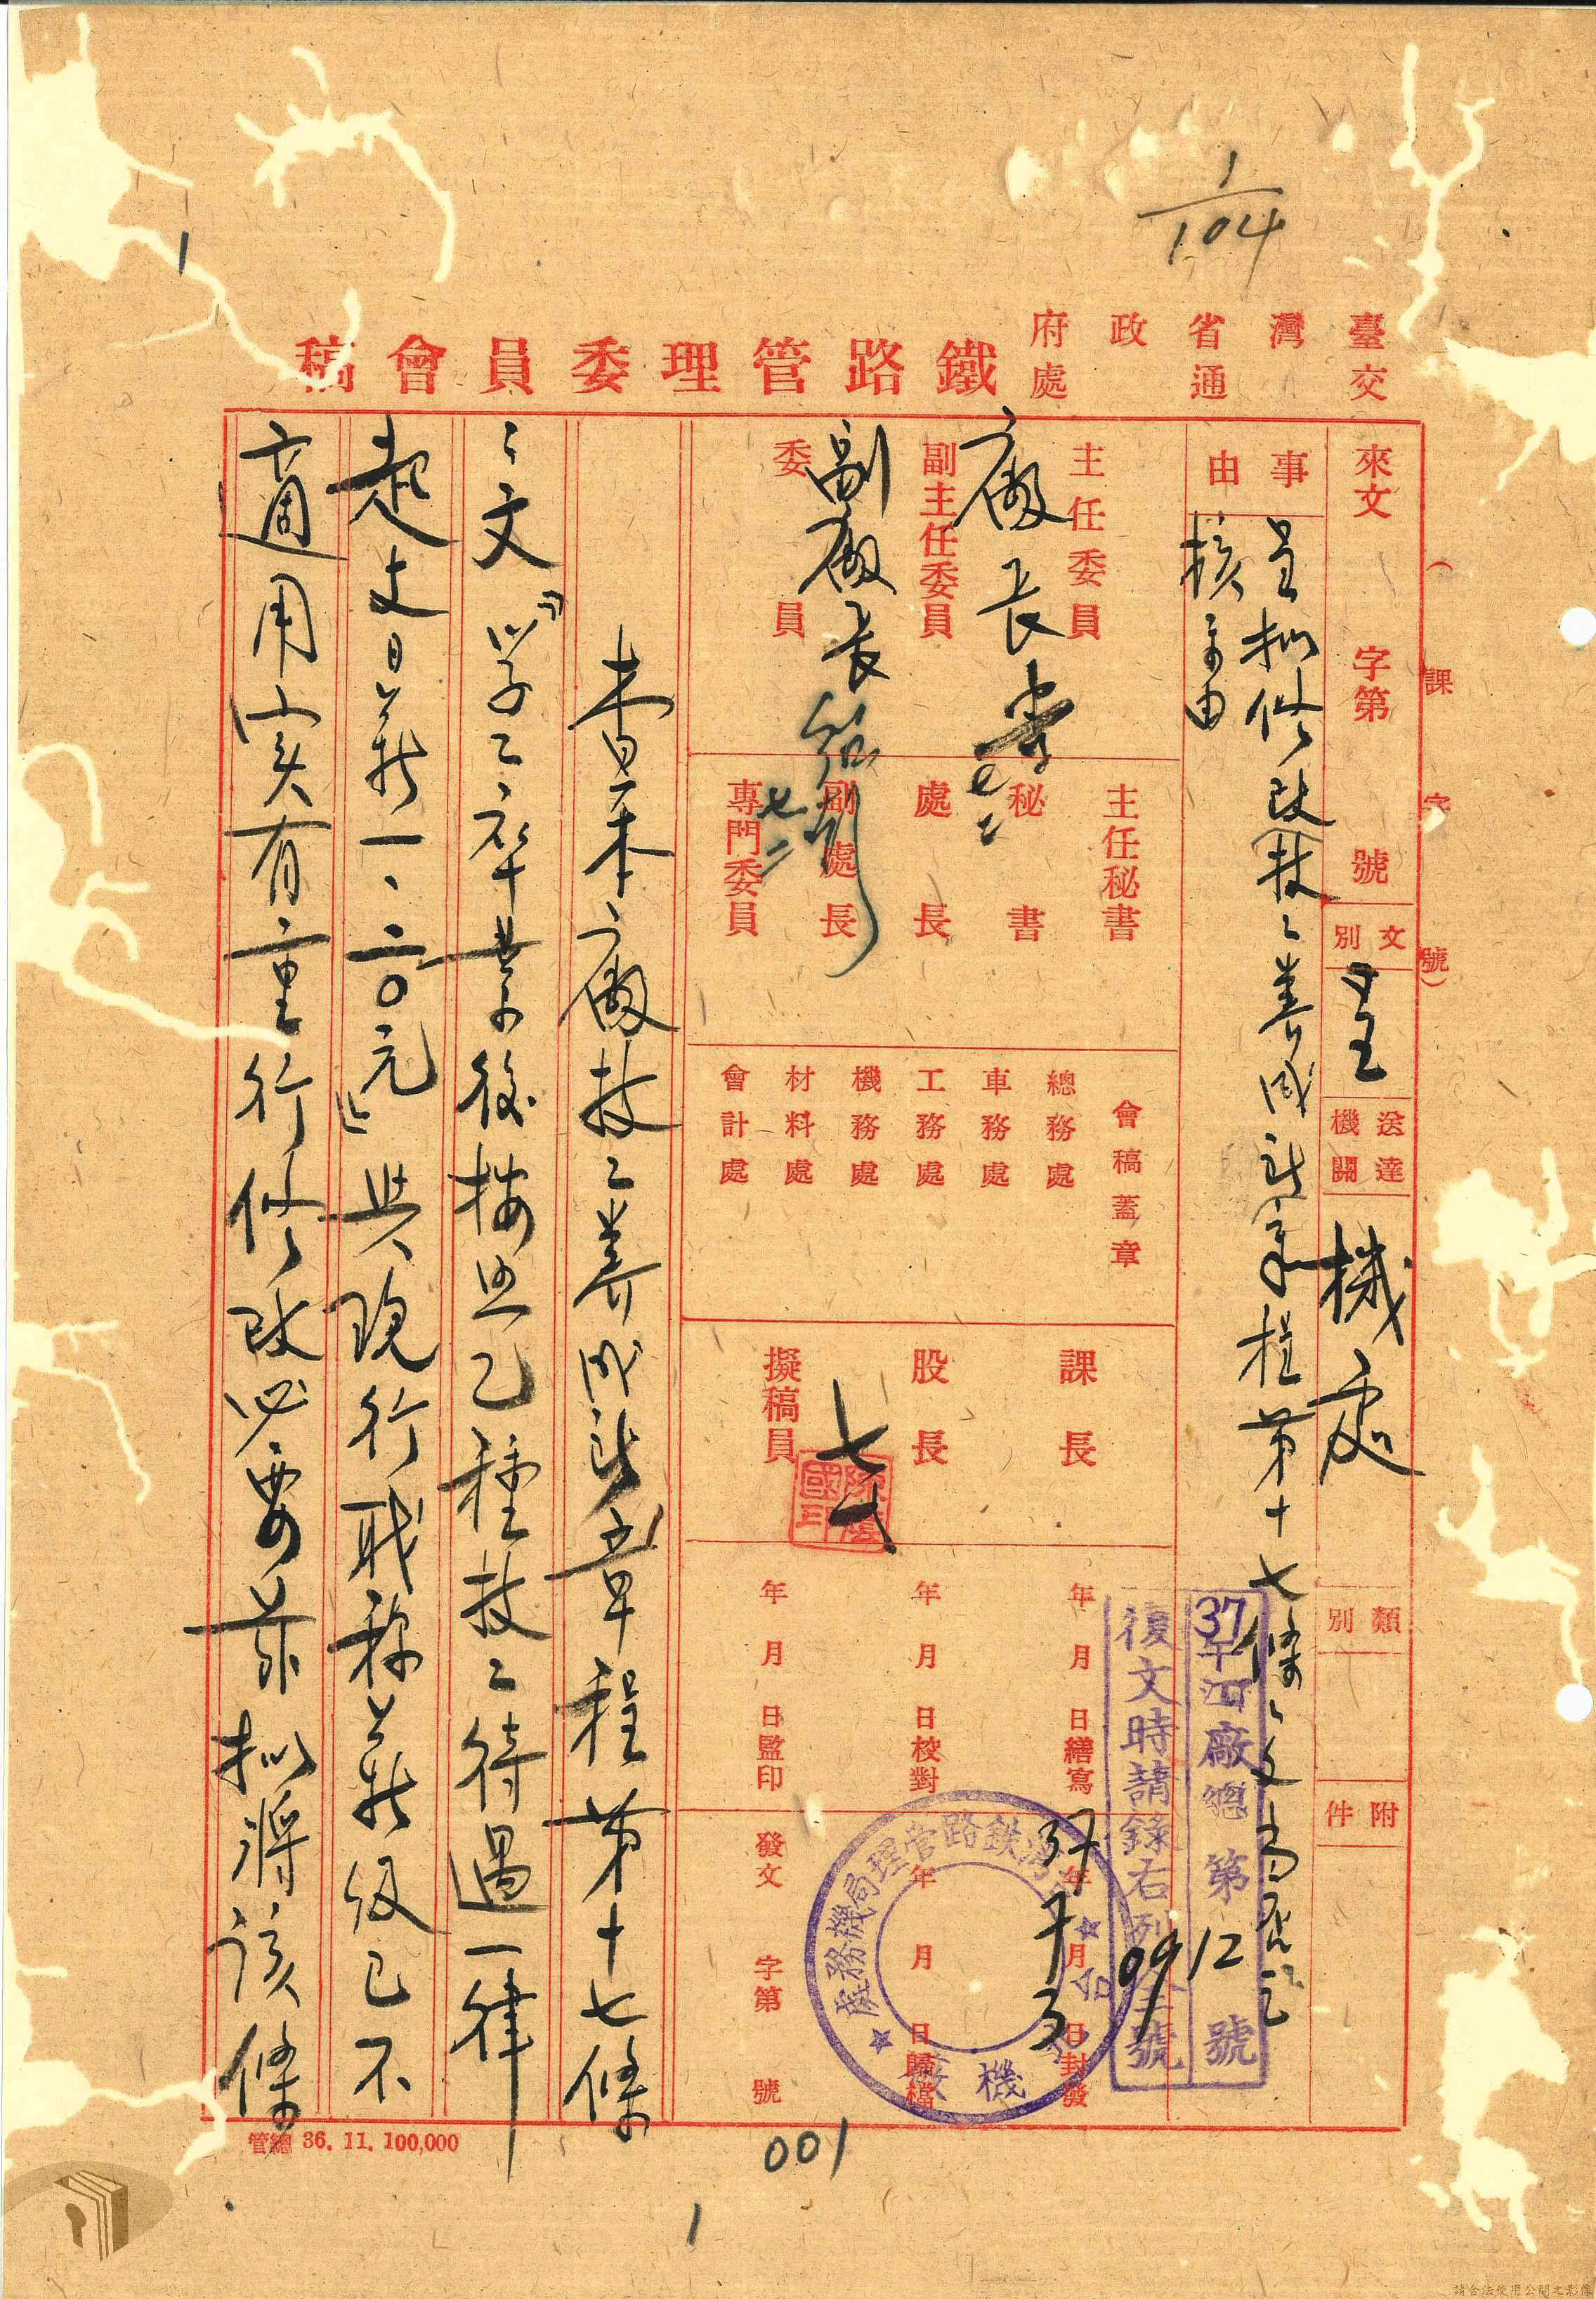 1/104
臺灣省政府
交通處
鐵路管理委員會稿
(課字號)
來文 字第 號
文別 呈
送達機關 機處
類別
附件
事由
呈擬修改技工養成所章程第十七條之文當否乞
核示由
主任委員
廠長
副主任委員
副廠長
委員
主任秘書
秘書
處長
副處長
專門委員
七二
會稿蓋章
總務處
車務處
工務處
機務處
材料處
會計處
課長
股長
擬稿員
年月日繕寫
年月日校對
年月日監印
37年7月3日封發
年月日歸檔
發文 字第 號
37年 廠總第 12 號
復文時請錄右列 號
0912
查本廠技工養成所章程第十七條
之文「學工卒業後按照乙種技工待遇一律
起支日薪一、二〇元」與現行職稱薪級已不
適用實有重行修改必要茲擬將該條
管總 36. 11. 100,000
001
1
請合法使用公開之影像